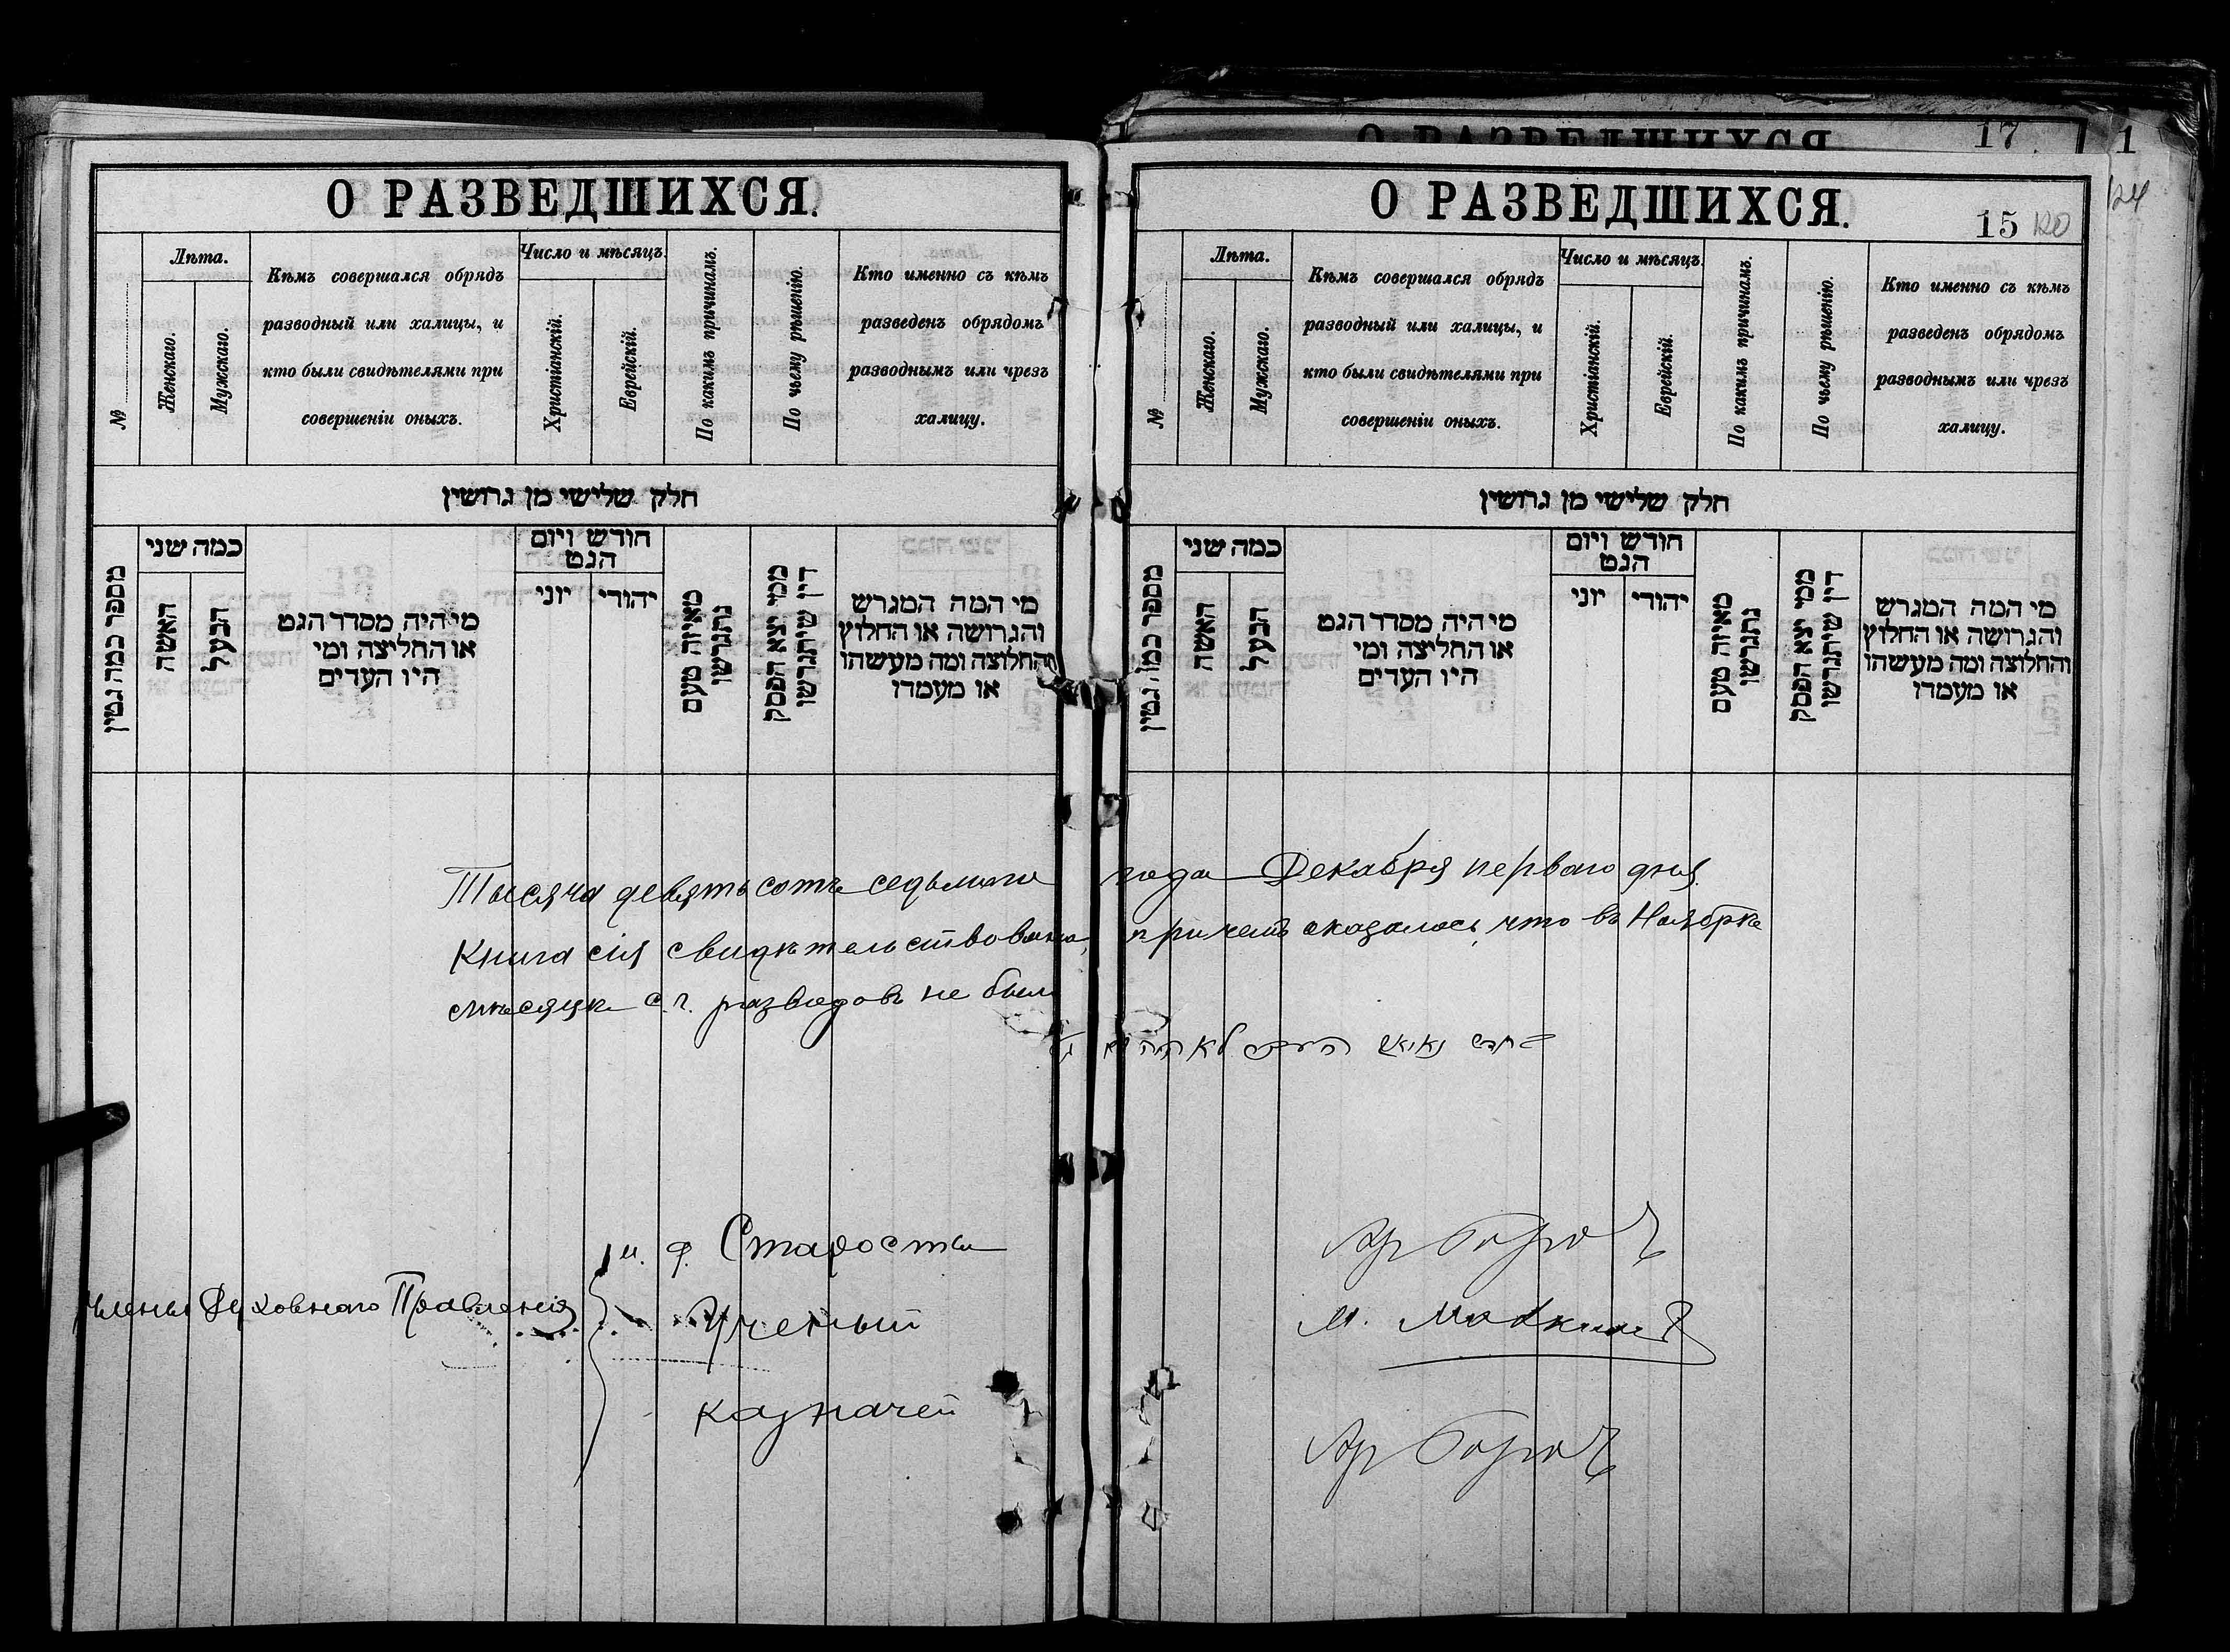 О РАЗВЕДШИХСЯ.
№
Лѣта.
Женскаго.
Мужскаго.
Кѣмъ совершался обрядъ
разводный или халицы, и
кто были свидѣтелями при
совершеніи оныхъ.
Число и мѣсяцъ.
Христіанскій.
Еврейскій.
По какимъ причинамъ.
По чьему рѣшенію.
Кто именно съ кѣмъ
разведенъ обрядомъ
разводнымъ или чрезъ
халицу.
חלק שלישי מן גרושין
מספר כמה גטין
כמה שני
האשה
הבעל
מי היה מסדר הגט
או החליצה ומי
היו העדים
חודש ויום
הגט
יוני
יהודי
מאיזה טעם
נתגרשו
ממי יצא הפסק
דין שיתגרשו
מי המה המגרש
והגרושה או החלוץ
והחלוצה ומה מעשהו
או מעמדו
17
О РАЗВЕДШИХСЯ.
1
124
О РАЗВЕДШИХСЯ.
15 120
№
Лѣта.
Женскаго.
Мужскаго.
Кѣмъ совершался обрядъ
разводный или халицы, и
кто были свидѣтелями при
совершеніи оныхъ.
Число и мѣсяцъ.
Христіанскій.
Еврейскій.
По какимъ причинамъ.
По чьему рѣшенію.
Кто именно съ кѣмъ
разведенъ обрядомъ
разводнымъ или чрезъ
халицу.
חלק שלישי מן גרושין
מספר כמה גטין
כמה שני
האשה
הבעל
מי היה מסדר הגט
או החליצה ומי
היו העדים
חודש ויום
הגט
יוני
יהודי
מאיזה טעם
נתגרשו
ממי יצא הפסק
דין שיתגרשו
מי המה המגרש
והגרושה או החלוץ
והחלוצה ומה מעשהו
או מעמדו
Тысяча девятьсотъ седьмого года Декабря перваго дня.
Книга сія свидѣтельствована, причемъ оказалось, что въ Ноябрѣ
мѣсяцѣ с. г. разводовъ не было
לא היה
Члены Духовнаго Правленія
и. ф. Старосты
Ученый
М.
Казначей